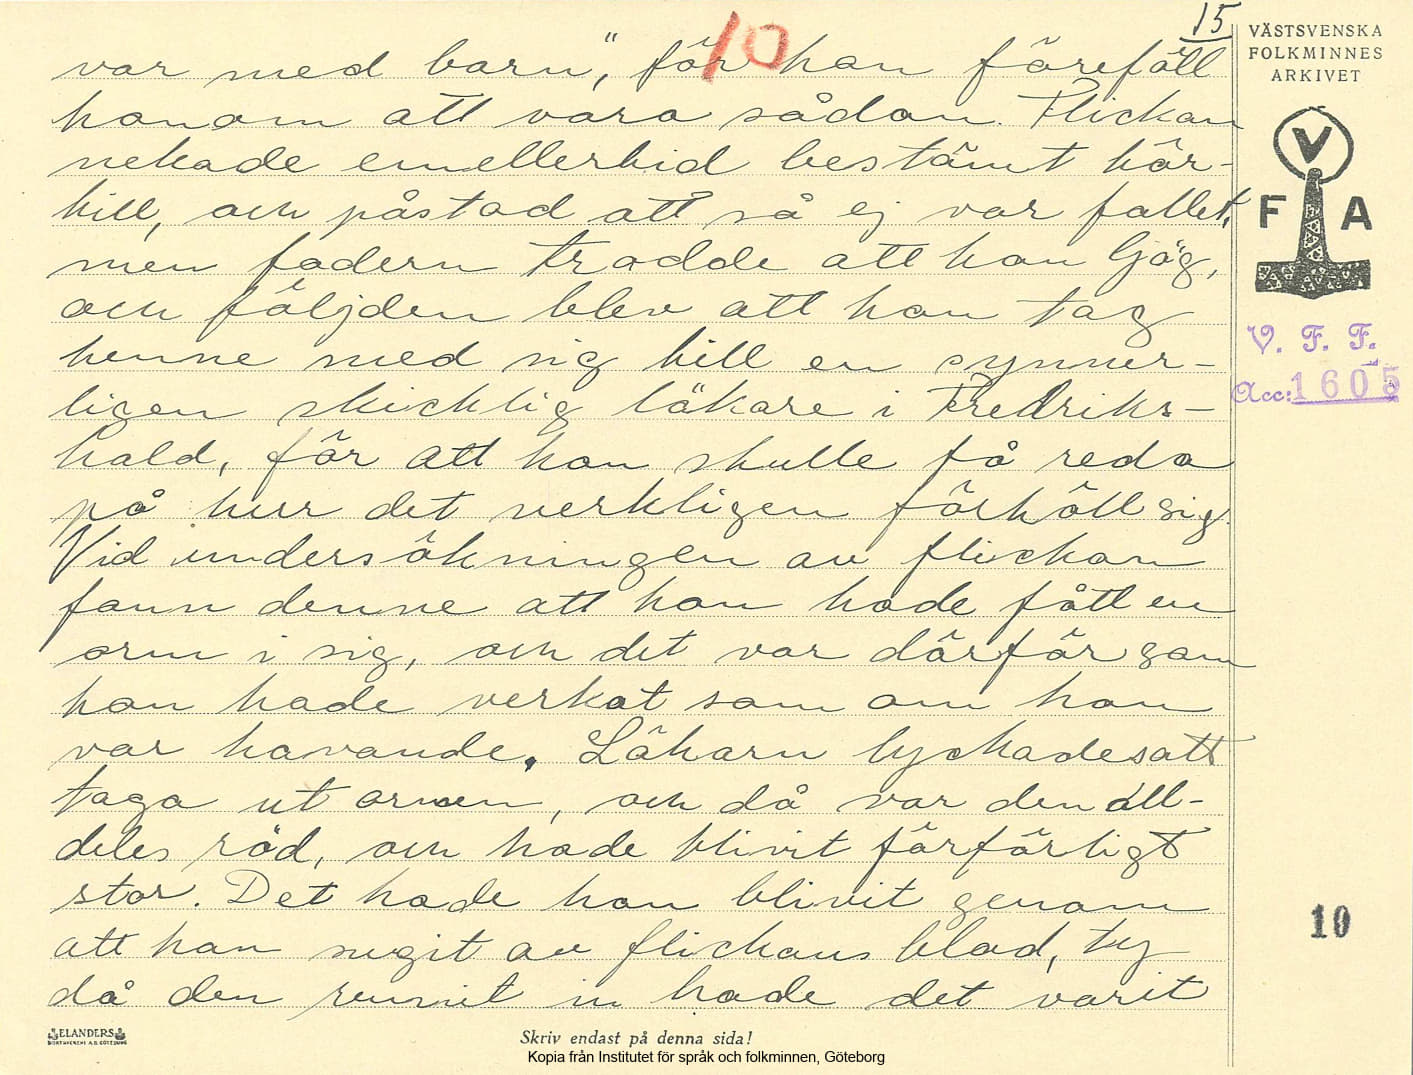 15
10
VÄSTSVENSKA
FOLKMINNES
ARKIVET
var med barn", för hon föreföll
honom att vara sådan. Flickan
nekade emellertid bestämt här-
till, och påstod att så ej var fallet,
men fadern trodde att hon ljög,
och följden blev att han tog
henne med sig till en synner-
ligen skicklig läkare i Fredriks-
hald, för att han skulle få reda
på hur det verkligen förhöll sig.
Vid undersökningen av flickan
fann denne att hon hade fått en
orm i sig, och det var därför som
hon hade verkat som om hon
var havande. Läkarn lyckades att
taga ut ormen, och då var den all-
deles röd, och hade blivit förfärligt
stor. Det hade han blivit genom
att han sugit av flickans blod, ty
då den runnit in hade det varit
V
F A
V. F. F.
Acc: 1605
10
ELANDERS
BOKTRYCKERI A.B. GÖTEBORG
Skriv endast på denna sida!
Kopia från Institutet för språk och folkminnen, Göteborg